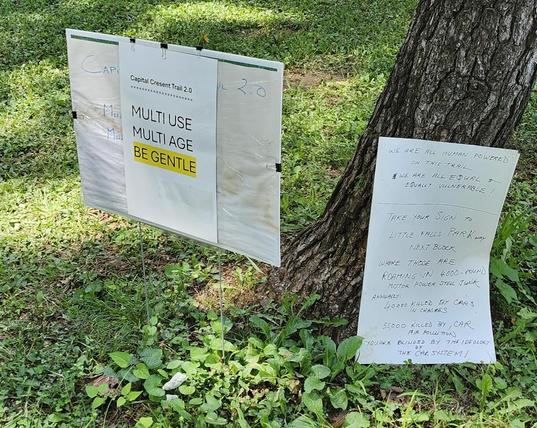 Capital Cresent Trail 2.0
MULTI USE
MULTI AGE
BE GENTLE
CAPI
L 2.0
MU
MU
WE ARE ALL HUMAN POWERED
ON THIS TRAIL.
WE ARE ALL EQUAL &
EQUALLY VULNERABLE!
TAKE YOUR SIGN TO
LITTLE FALLS PARKWAY
NEXT BLOCK
WHERE THOSE ARE
ROAMING IN 4000-POUND
MOTOR POWER STEEL
ANNUALLY:
40000 KILLED BY CARS
IN CRASHES
55000 KILLED BY CAR
AIR POLLUTION
YOU ARE BLINDED BY THE IDEOLOGY
OF
THE CAR SYSTEM!